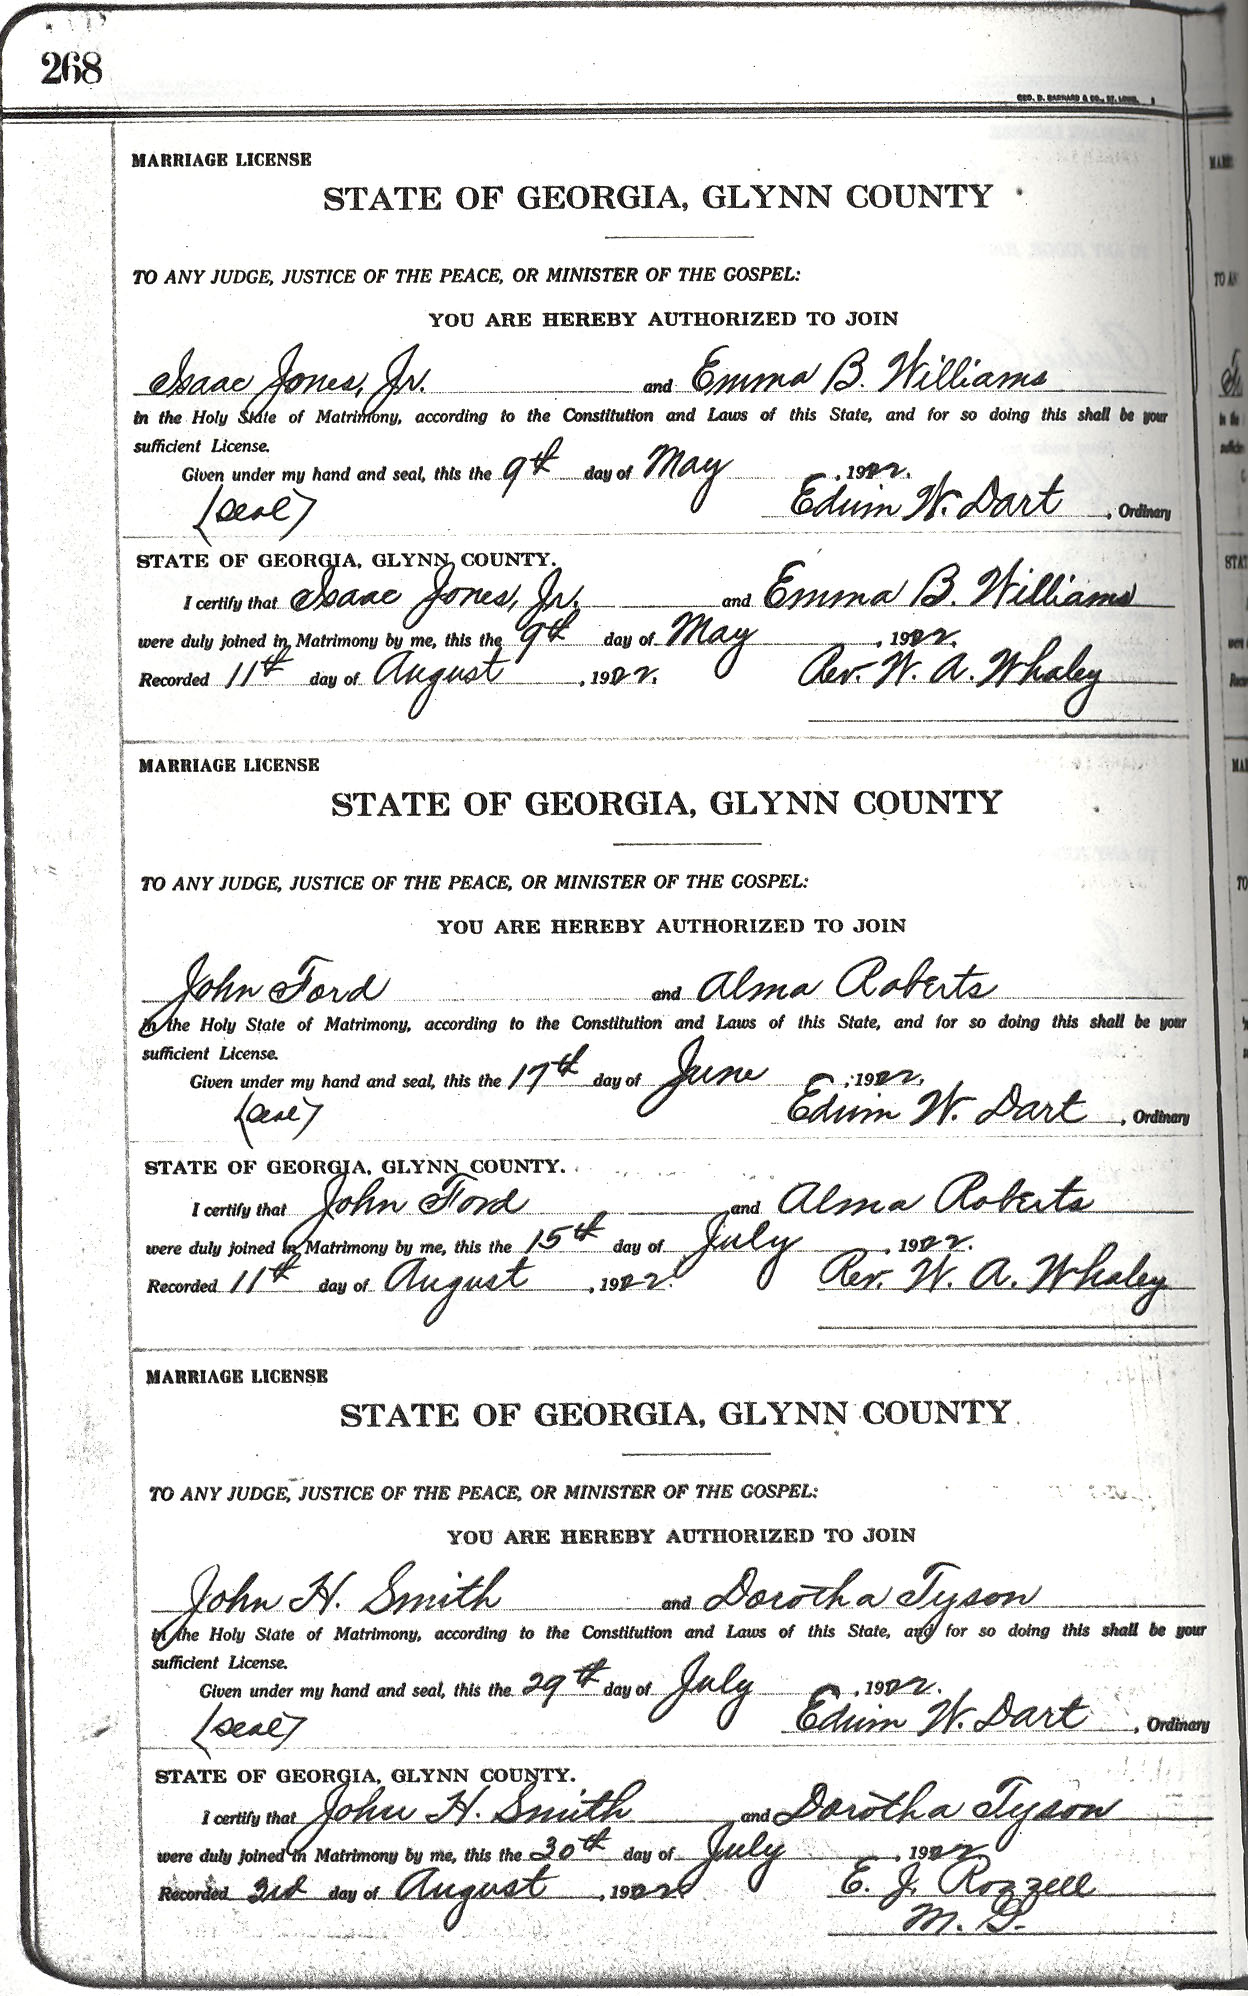 268
GEO. D. BARNARD & CO., ST. LOUIS.
MARRIAGE LICENSE
STATE OF GEORGIA, GLYNN COUNTY
TO ANY JUDGE, JUSTICE OF THE PEACE, OR MINISTER OF THE GOSPEL:
YOU ARE HEREBY AUTHORIZED TO JOIN
Isaac Jones, Jr. and Emma B. Williams
in the Holy State of Matrimony, according to the Constitution and Laws of this State, and for so doing this shall be your
sufficient License.
Given under my hand and seal, this the 9th day of May, 1922.
(Seal) Edwin W. Dart, Ordinary
STATE OF GEORGIA, GLYNN COUNTY.
I certify that Isaac Jones, Jr. and Emma B. Williams
were duly joined in Matrimony by me, this the 9th day of May, 1922.
Recorded 11th day of August, 1922. Rev. W. A. Whaley
MARRIAGE LICENSE
STATE OF GEORGIA, GLYNN COUNTY
TO ANY JUDGE, JUSTICE OF THE PEACE, OR MINISTER OF THE GOSPEL:
YOU ARE HEREBY AUTHORIZED TO JOIN
John Ford and Alma Roberts
in the Holy State of Matrimony, according to the Constitution and Laws of this State, and for so doing this shall be your
sufficient License.
Given under my hand and seal, this the 17th day of June, 1922.
(Seal) Edwin W. Dart, Ordinary
STATE OF GEORGIA, GLYNN COUNTY.
I certify that John Ford and Alma Roberts
were duly joined in Matrimony by me, this the 15th day of July, 1922.
Recorded 11th day of August, 1922. Rev. W. A. Whaley
MARRIAGE LICENSE
STATE OF GEORGIA, GLYNN COUNTY
TO ANY JUDGE, JUSTICE OF THE PEACE, OR MINISTER OF THE GOSPEL:
YOU ARE HEREBY AUTHORIZED TO JOIN
John H. Smith and Dorotha Tyson
in the Holy State of Matrimony, according to the Constitution and Laws of this State, and for so doing this shall be your
sufficient License.
Given under my hand and seal, this the 29th day of July, 1922.
(Seal) Edwin W. Dart, Ordinary
STATE OF GEORGIA, GLYNN COUNTY.
I certify that John H. Smith and Dorotha Tyson
were duly joined in Matrimony by me, this the 30th day of July, 1922
Recorded 3rd day of August, 1922 E. J. Rozzell
M. G.